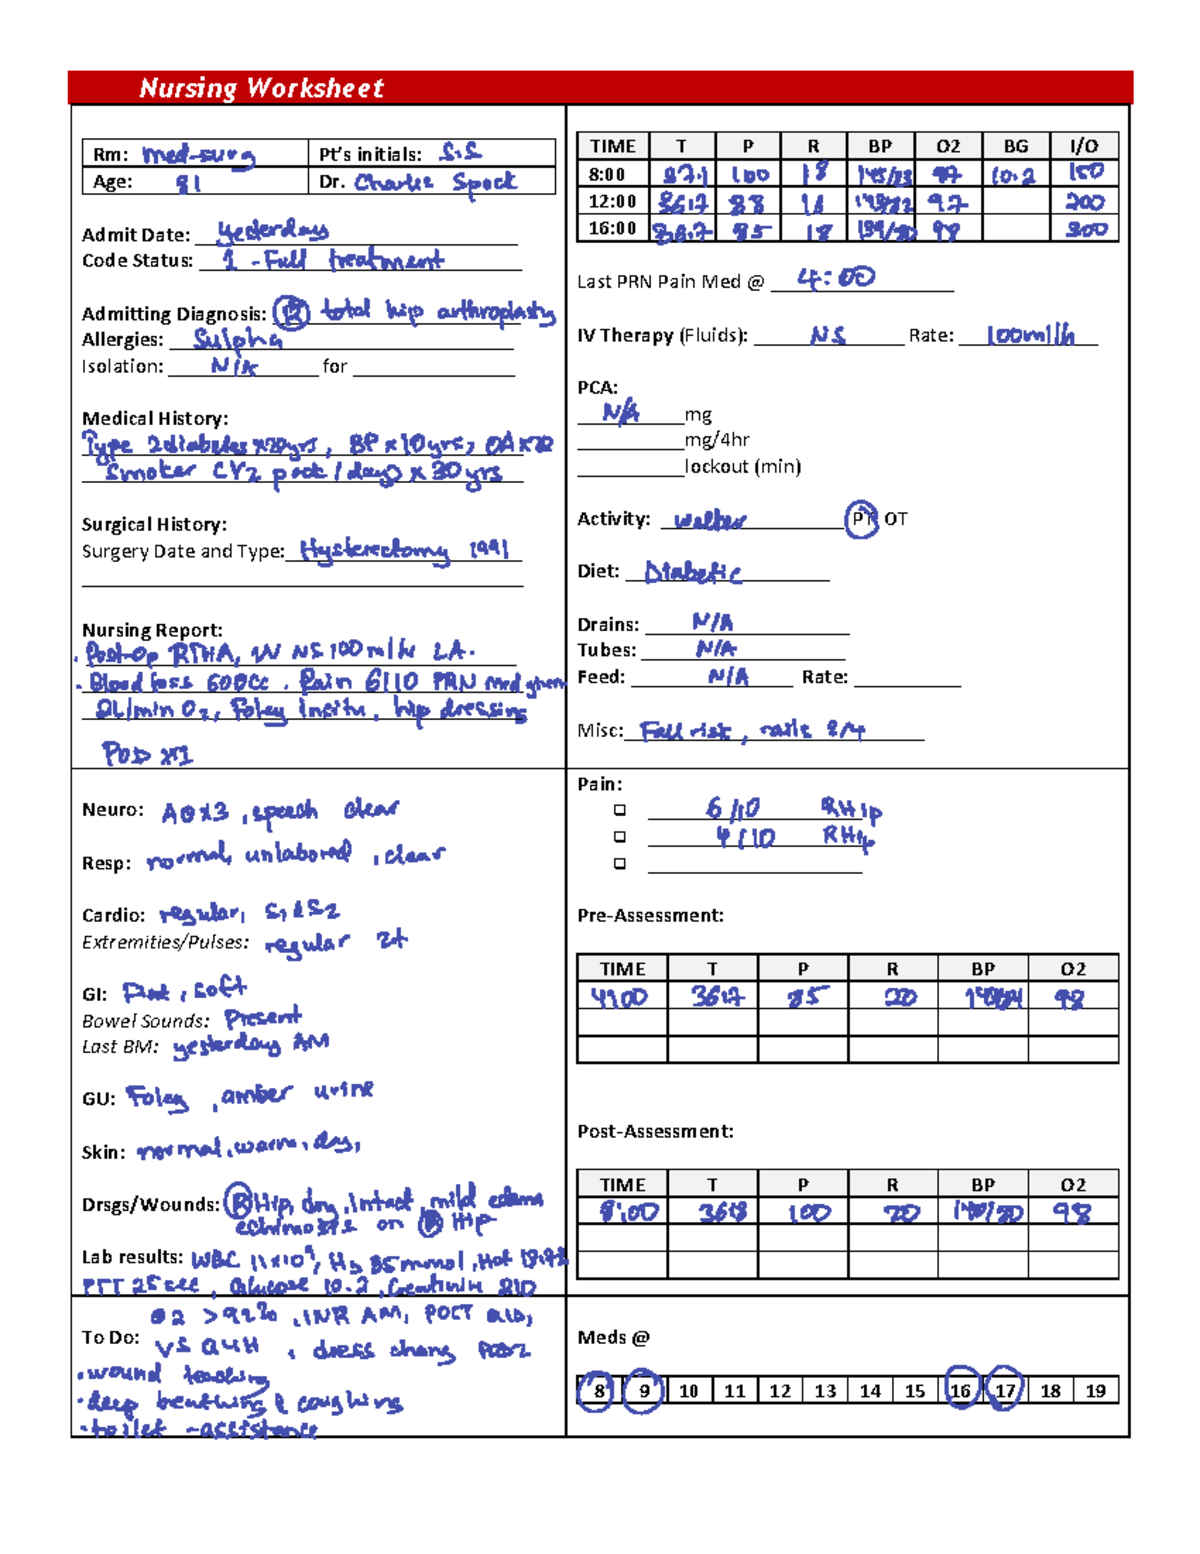 Nursing Worksheet
Rm: med-surg Pt's initials: S.S
Age: 81 Dr. Charlie Spock
Admit Date: yesterday
Code Status: 1 - Full treatment
Admitting Diagnosis: R total hip arthroplasty
Allergies: Sulpha
Isolation: N/A for
Medical History:
Type 2 diabetes x20yrs, BP x 10yrs, OA x
Smoker (1/2 pack/day) x 30 yrs
Surgical History:
Surgery Date and Type: Hysterectomy 1991
Nursing Report:
. Post-op RTHA, IV NS 100 ml/hr LA.
. Blood loss 600cc . Pain 6/10 PRN med given
2L/min O2, Foley insitu, hip dressing
POD x1
TIME T P R BP O2 BG I/O
8:00 37.1 100 18 97 10.2 150
12:00 36.7 88 18 97 200
16:00 36.7 85 18 139/80 98 300
Last PRN Pain Med @ 4:00
IV Therapy (Fluids): NS Rate: 100ml/h
PCA:
N/A mg
mg/4hr
lockout (min)
Activity: walker PT OT
Diet: Diabetic
Drains: N/A
Tubes: N/A
Feed: N/A Rate:
Misc: Fall risk, rails 2/4
Neuro: AOx3, speech clear
Resp: normal, unlabored, clear
Cardio: regular, S1 & S2
Extremities/Pulses: regular 2+
GI: Flat, soft
Bowel Sounds: Present
Last BM: yesterday AM
GU: Foley, amber urine
Skin: normal, warm, dry,
Drsgs/Wounds: R Hip, dry, intact, mild edema
echimosis on R Hip
Lab results: WBC 11x10⁹, Hg 85mmol, Hct
PTT 25 sec, Glucose 10.2, Creatinin 810
Pain:
6/10 R Hip
4/10 R Hip
Pre-Assessment:
TIME T P R BP O2
4:00 36.7 85 20 98
Post-Assessment:
TIME T P R BP O2
8:00 36.8 100 20 140/80 98
O2 >92%, INR AM, POCT QID,
To Do: VS Q4H, dress chang POD2
. wound teaching
. deep breathing & coughing
. toilet -assistance
Meds @
8 9 10 11 12 13 14 15 16 17 18 19